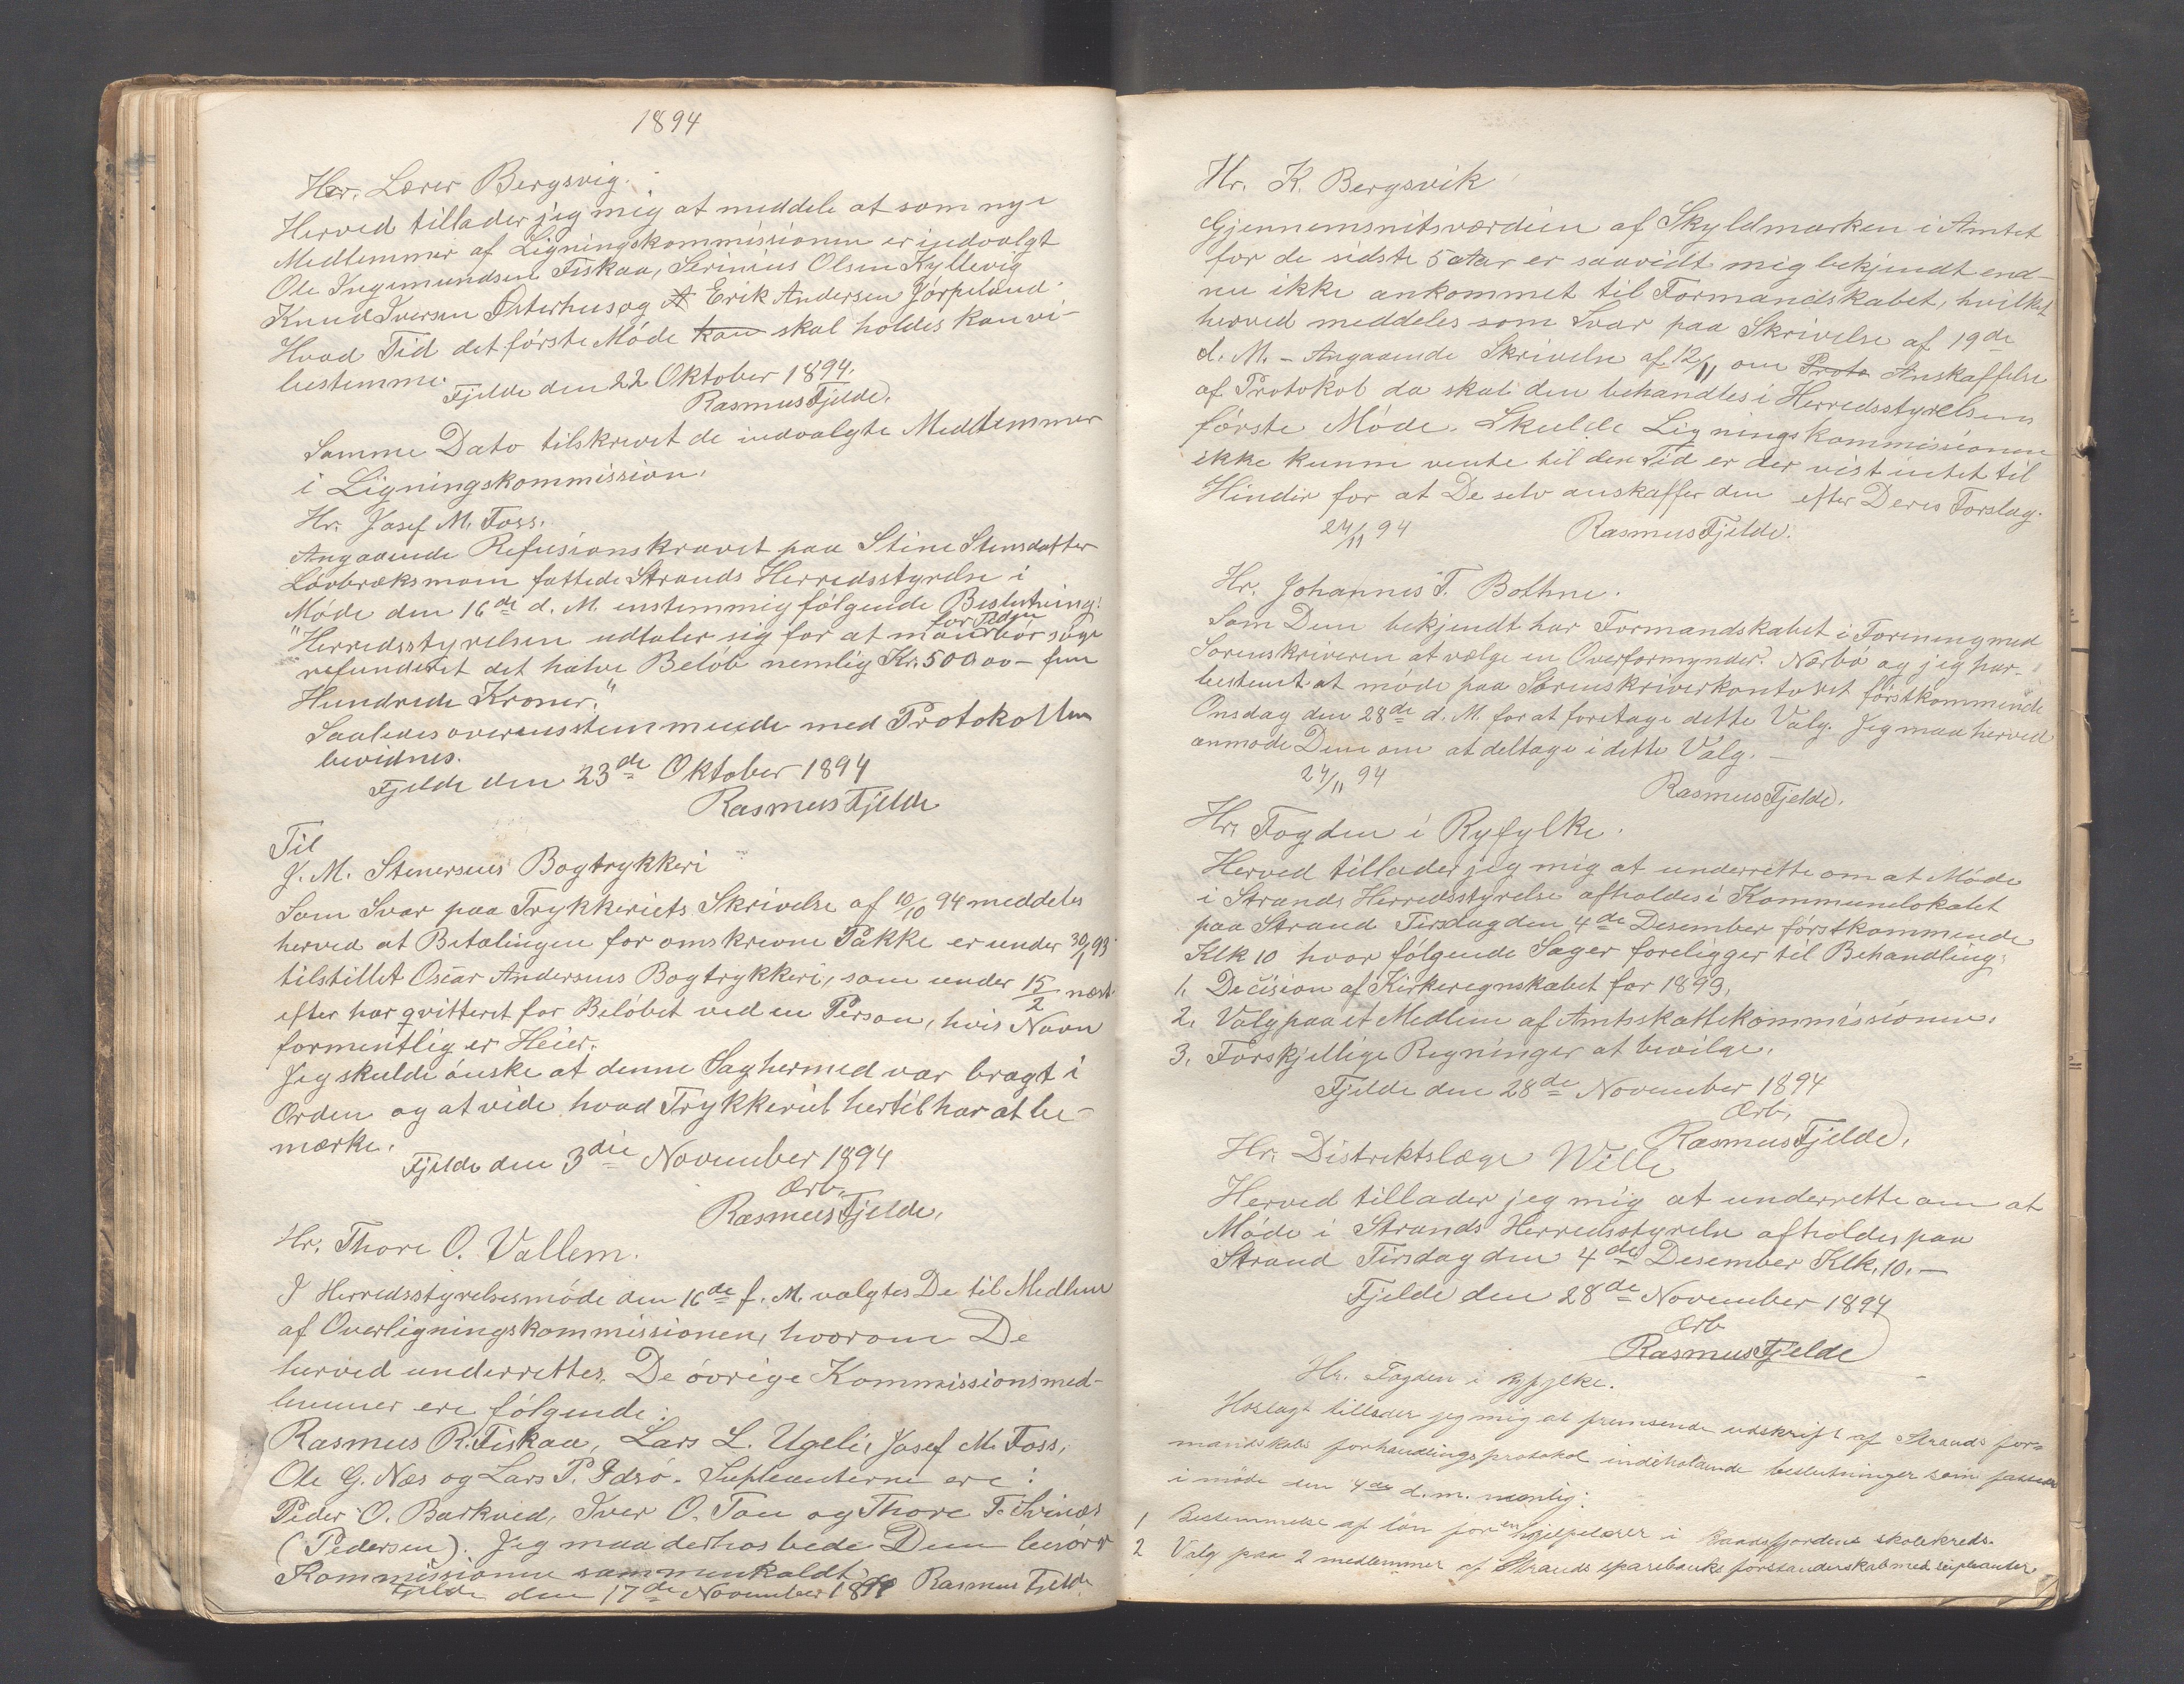 1894
Hr. Lærer Bergsvig.
Herved tillader jeg mig at meddele at som nye
Medlemmer af Ligningskommissionen er indvalgt
Ole Ingemundsen Fiskaa, Serinius Olsen Kyllevig
Knud Iversen Østerhus og A Erik Andersen Jørpeland.
Hvad Tid det første Møde kan skal holdes kan vi
bestemme.
Fjelde den 22 Oktober 1894.
Rasmus Fjelde.
Samme Dato tilskrevet de indvalgte Medlemmer
i Ligningskommission.
Hr. Josef M. Foss.
Angaaende Refusionskravet paa Stine Stensdatter
Løvbræksmoen fattede Strands Herredsstyrelse i
Møde den 16de d. M. enstemmig følgende Beslutning:
"Herredsstyrelsen udtaler sig for at man bør søge
refunderet det halve Beløb nemlig Kr. 500.00 - fem
Hundrede Kroner."
Saaledes overensstemmende med Protokollen
bevidnes.
Fjelde den 23de Oktober 1894
Rasmus Fjelde
Til
J. M. Stenersens Bogtrykkeri
Som Svar paa Trykkeriets Skrivelse af 10/10 94 meddeles
herved at Betalingen for omskrevne Pakke er under 30/1 93
tilstillet Oscar Andersens Bogtrykkeri, som under 15/2 næst
efter har qvitteret for Beløbet ved en Person, hvis Navn
formentlig er Heier.
Jeg skulde ønske at denne Sag hermed var bragt i
Orden og at vide hvad Trykkeriet hertil har at be-
mærke.
Fjelde den 3die November 1894
Ærb.
Rasmus Fjelde.
Hr. Thore O. Vallem.
I Herredsstyrelsesmøde den 16de f. M. valgtes De til Medlem
af Overligningskommissionen, hvorom De
herved underrettes. De øvrige Kommissionsmed-
lemmer ere følgende:
Rasmus R. Fiskaa, Lars L. Ugeli, Josef M. Foss,
Ole G. Næs og Lars P. Idsø. Supleanterne ere:
Peder O. Barkved, Iver O. Tau og Thore T. Svinæs
(Pedersen). Jeg maa derhos bede Dem besørge
Kommissionen sammenkaldt.
Fjelde den 17de November 1894 Rasmus Fjelde
Hr. K. Bergsvik
Gjennemsnitsværdien af Skyldmarken i Amtet
for de sidste 5 Aar er saavidt mig bekjendt end-
nu ikke ankommet til Formandskabet, hvilket
herved meddeles som Svar paa Skrivelse af 19de
d. M. - Angaaende Skrivelse af 12/11 om Proto Anskaffelse
af Protokol da skal den behandles i Herredsstyrelsens
første Møde. Skulde Ligningskommissionen
ikke kunne vente til den Tid er der vist intet til
Hinder for at De selv anskaffer den efter Deres Forslag.
24/11 94
Rasmus Fjelde.
Hr. Johannes T. Bothne.
Som Dem bekjendt har Formandskabet i Forening med
Sorenskriveren at vælge en Overformynder. Nærbø og jeg har
bestemt at møde paa Sorenskriverkontoret førstkommende
Onsdag den 28de d. M. for at foretage dette Valg. Jeg maa herved
anmode Dem om at deltage i dette Valg. -
24/11 94
Rasmus Fjelde.
Hr. Fogden i Ryfylke.
Herved tillader jeg mig at underrette om at Møde
i Strands Herredsstyrelse afholdes i Kommunelokalet
paa Strand Tirsdag den 4de Desember førstkommende
Klk 10 hvor følgende Sager foreligger til Behandling:
1. Decision af Kirkeregnskabet for 1893.
2. Valg paa et Medlem af Amtsskattekommissionen.
3. Forskjellige Regninger at bevilge.
Fjelde den 28de November 1894
Ærb.
Rasmus Fjelde.
Hr. Distriktslæge Wille
Herved tillader jeg mig at underrette om at
Møde i Strands Herredsstyrelse afholdes paa
Strand Tirsdag den 4de Desember Klk. 10. -
Fjelde den 28de November 1894
Ærb
Rasmus Fjelde
Hr. Fogden i Ryfylke.
Hoslagt tillader jeg mig at fremsende udskrift af Strands for-
mandskabs forhandlingsprotokol indeholdende beslutninger som fattedes
i møde den 4de d. m. nemlig:
1 Bestemmelse af løn for en hjelpelærer i skolekreds.
2 Valg paa 2 medlemmer af Strands sparebanks forstanderskab med supleanter